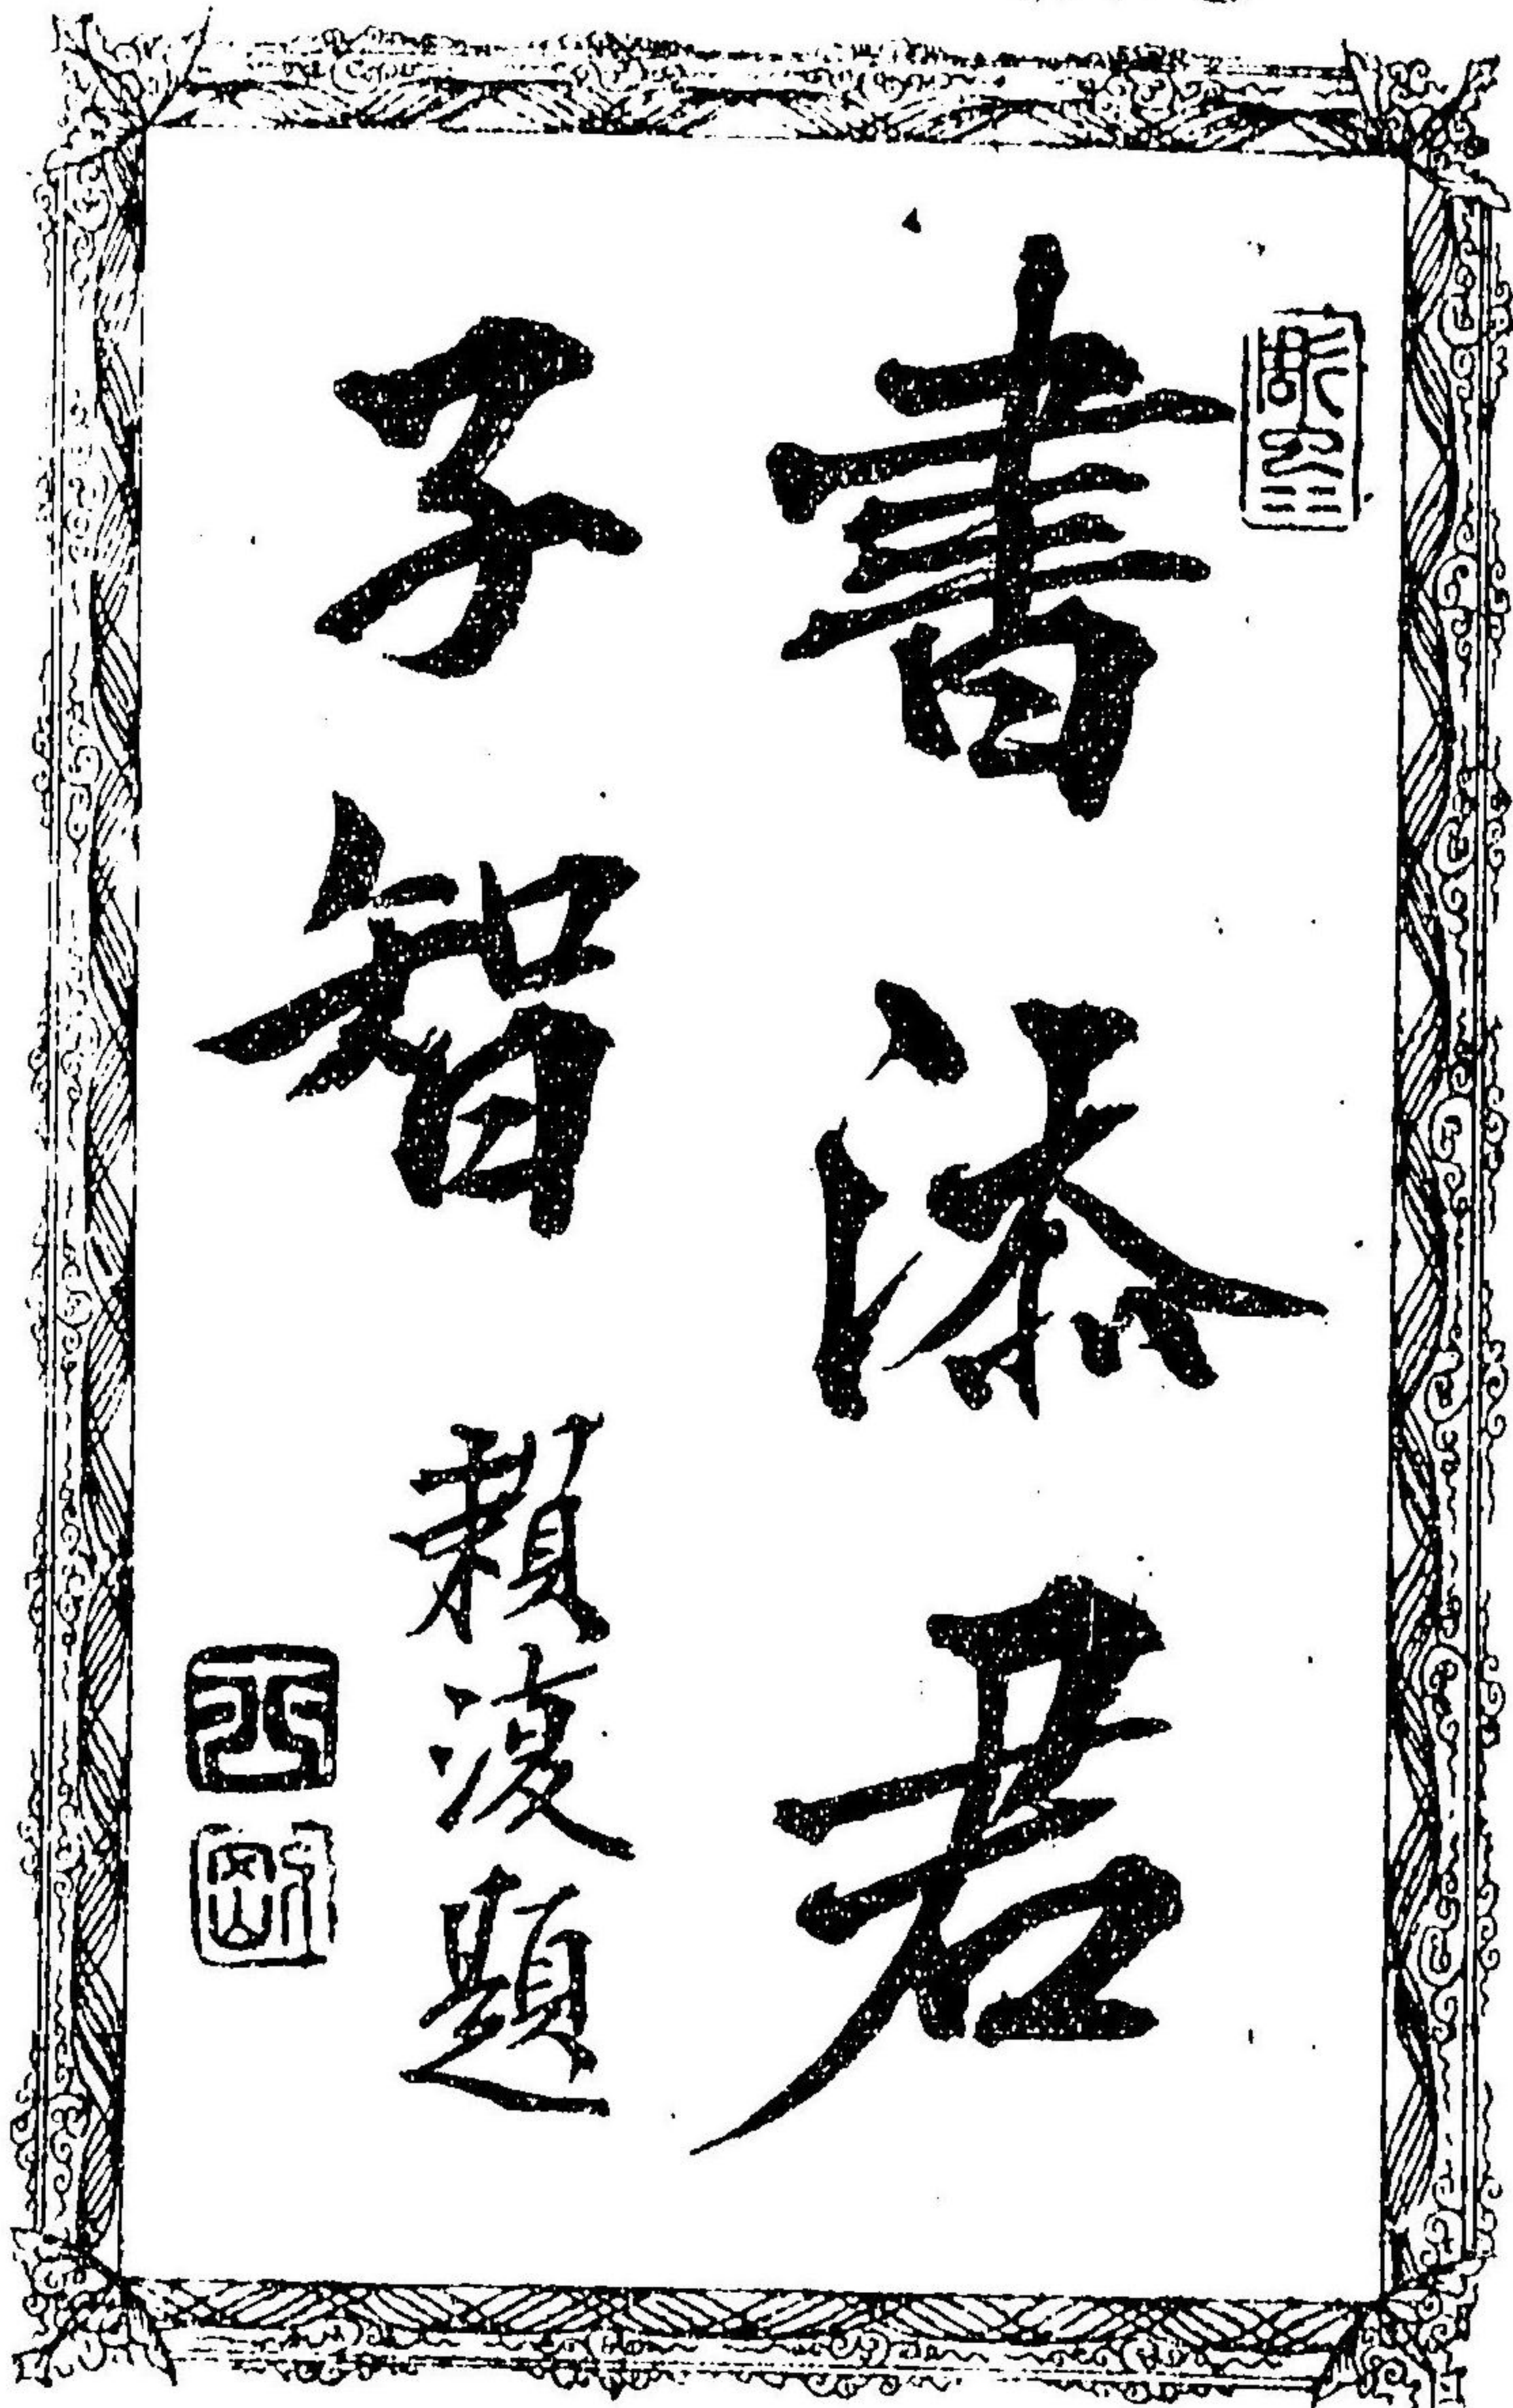 書添君
子智 賴復題